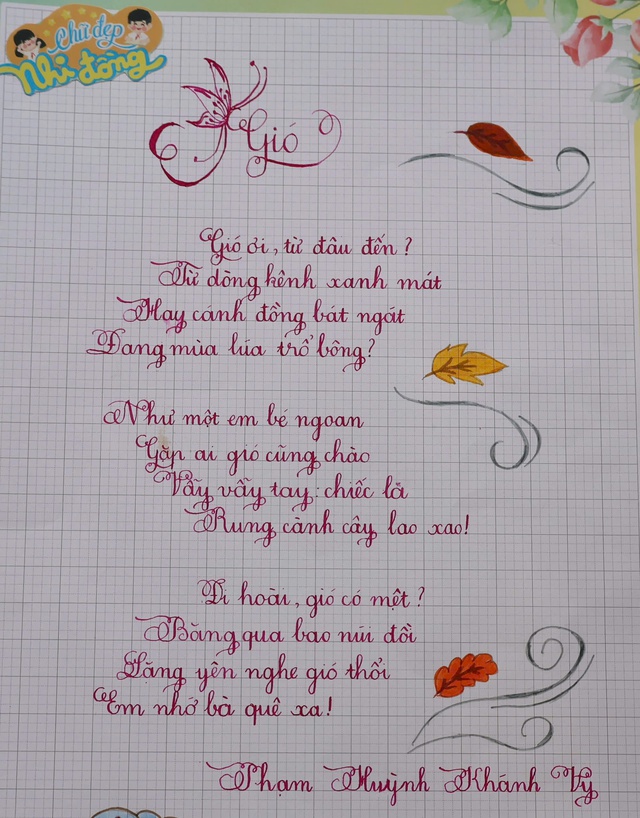 Chữ đẹp
Nhi đồng
Gió
Gió ơi, từ đâu đến?
Từ dòng kênh xanh mát
Hay cánh đồng bát ngát
Đang mùa lúa trổ bông?
Như một em bé ngoan
Gặp ai gió cũng chào
Vẫy vẫy tay: chiếc lá
Rung cành cây lao xao!
Đi hoài, gió có mệt?
Băng qua bao núi đồi
Lặng yên nghe gió thổi
Em nhớ bà quê xa!
Phạm Huỳnh Khánh Vy